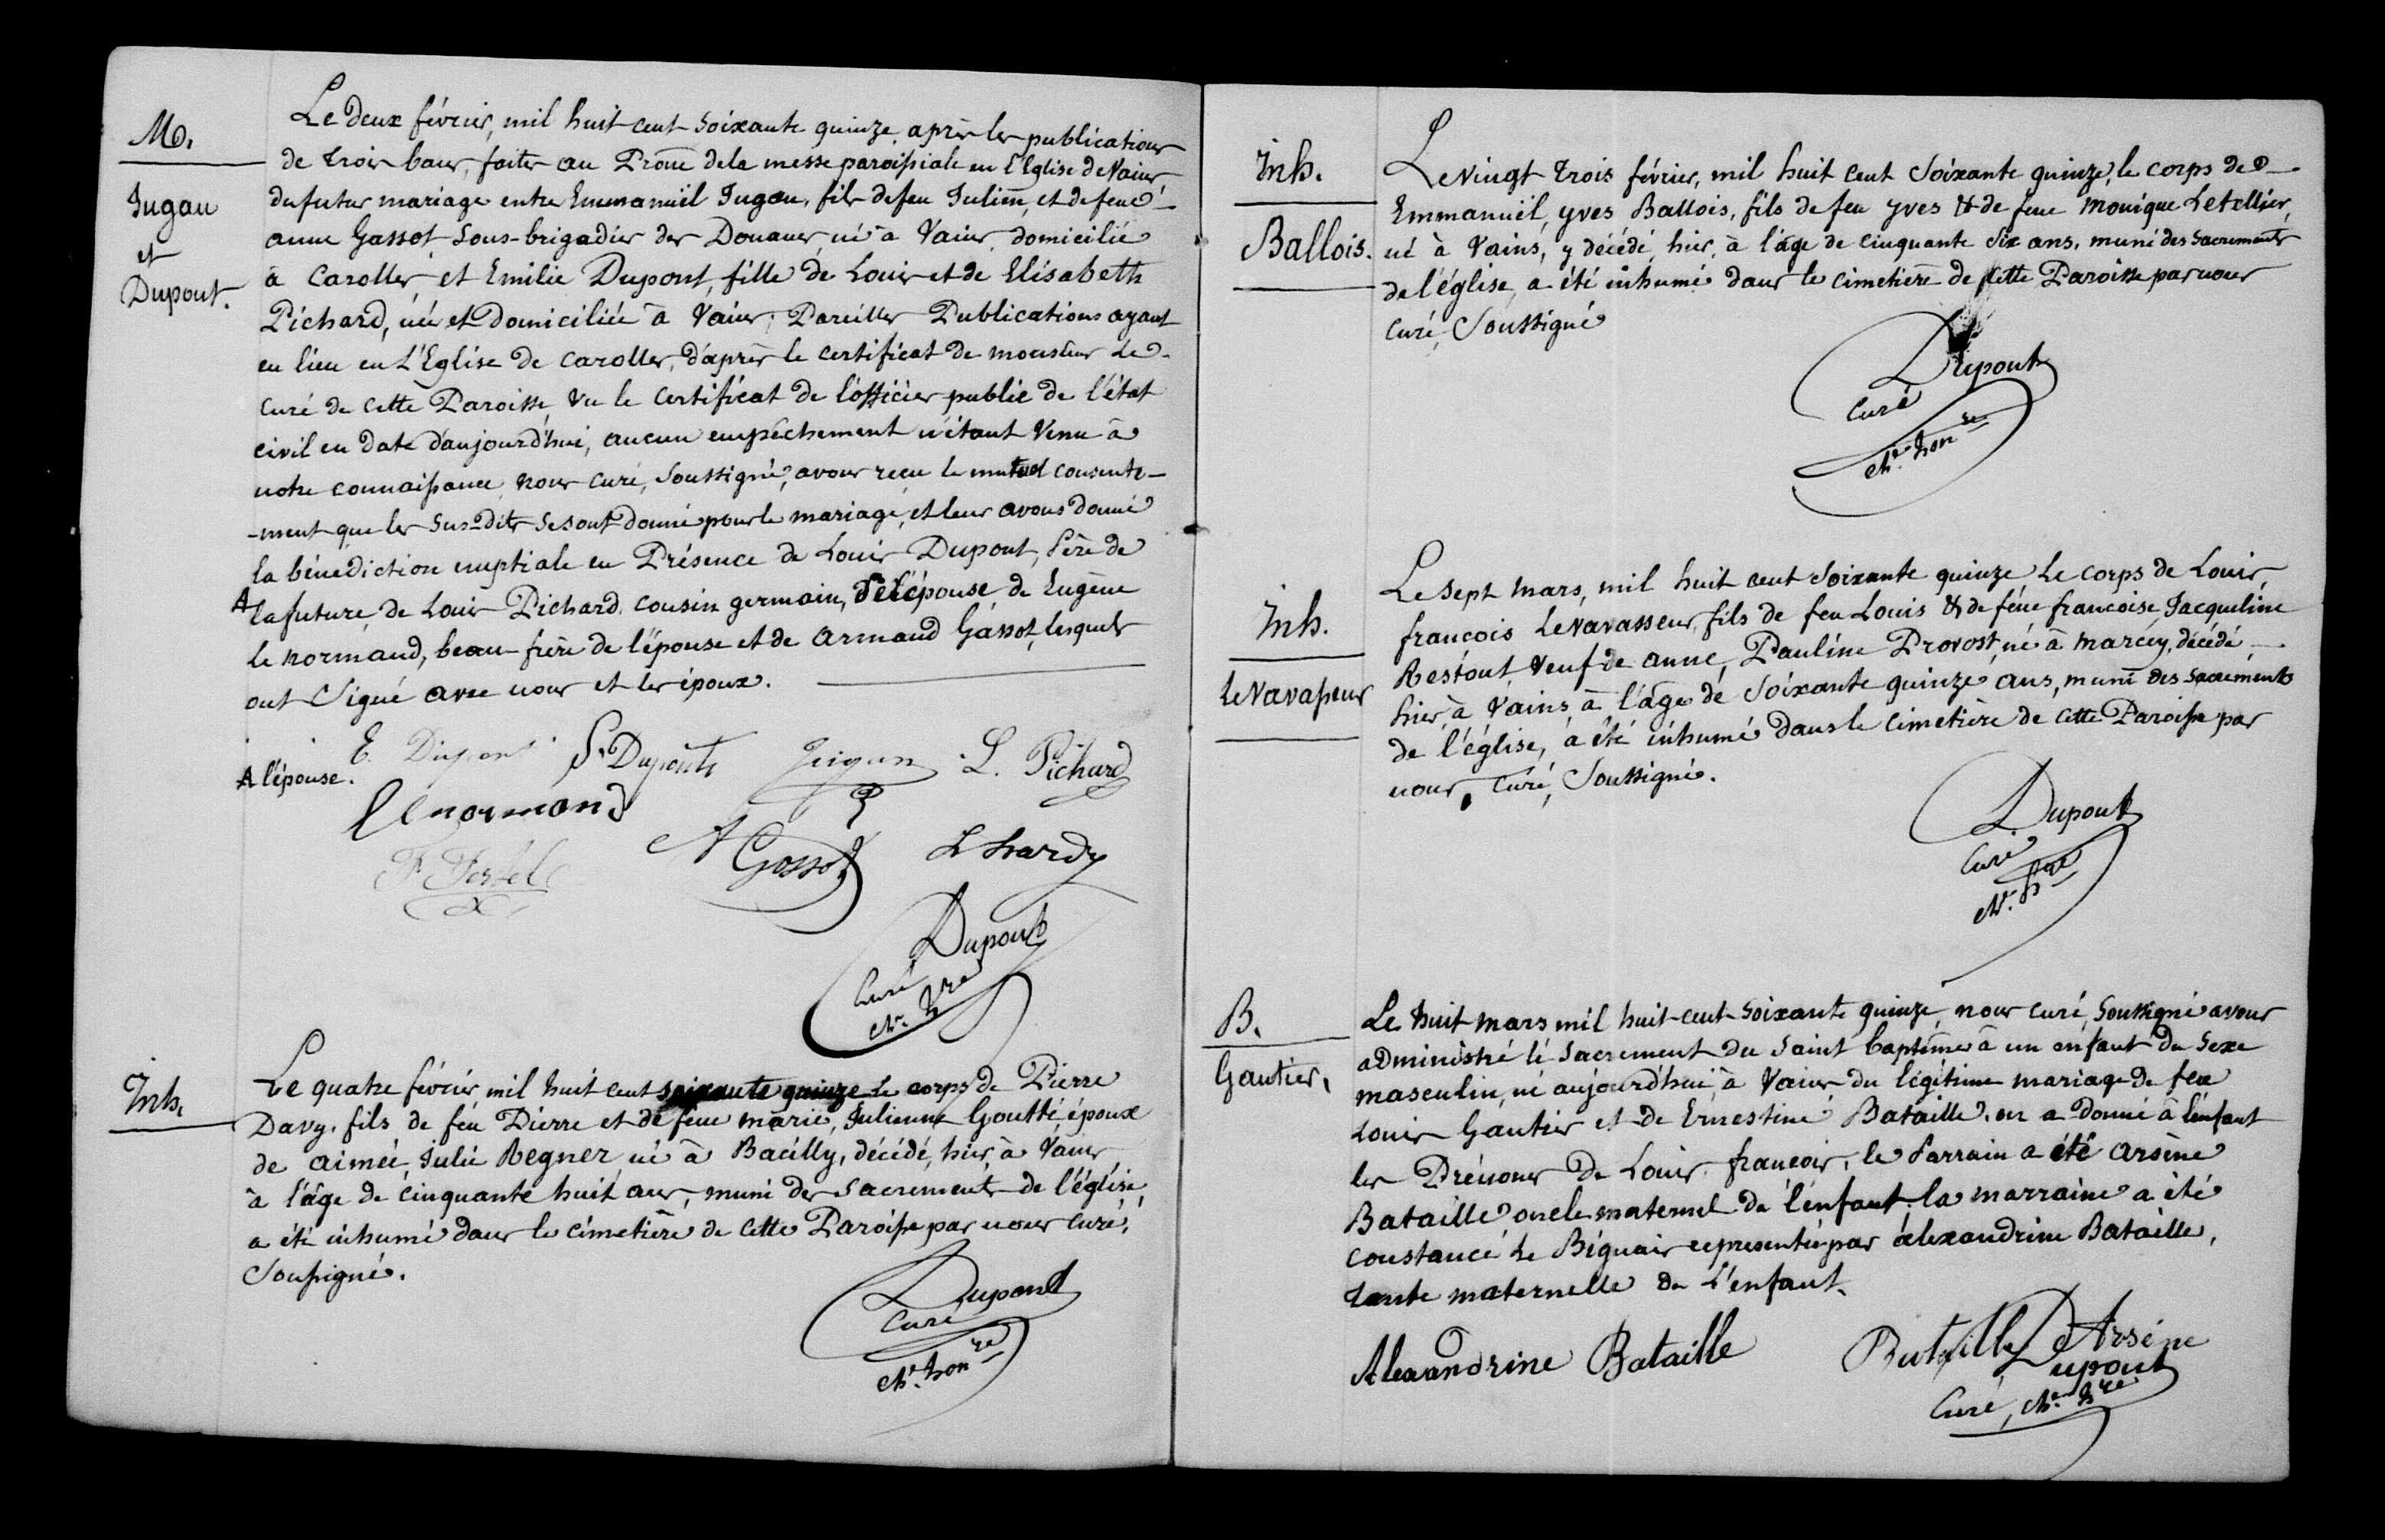 M.
Jugan
et
Dupont.
Le deux février, mil huit cent soixante quinze, après les publications
de trois bans, faites au Prône de la messe paroissiale en l'Eglise de Vains
du futur mariage entre Emmanuël Jugan, fils de feu Julien, et de feue
anne Gassot Sous-brigadier des Douanes, né à Vains, domicilié
à Carolles, et Emilie Dupont, fille de Louis et de Elisabeth
Pichard, née et Domiciliée à Vains; Pareilles Publications ayant
eu lieu en L'Eglise de Carolles, d'après le certificat de monsieur Le
Curé de Cette Paroisse, Vu le Certificat de l'officier public de l'état
civil en Date d'aujourd'hui, aucun empêchement n'étant Venu à
notre connaissance, nous curé, Soussigné, avons reçu le mutuel consente-
-ment que les Sus-dits se sont donné pour le mariage, et leur avons donné
la bénédiction nuptiale en Présence de Louis Dupont, Père de
A la future, de Louis Pichard, cousin germain, de l'épouse, de Eugène
Le normand, beau-frère de l'épouse et de Armand Gassot, lesquels
ont Signé avec nous et les époux.
A l'épouse.
E. Dupont L. Dupont Jugan L. Pichard
Lenormand
A Gassot L hardy
Dupont
Curé
ch. hre
Inh.
Le quatre février, mil huit cent soixante quinze Le corps de Pierre
Davy, fils de feu Pierre et de feue marie, Julienne Goutté, époux
de aimée, Julie Regner, né à Bacilly, décédé, hier, à Vains
à l'âge de cinquante huit ans, muni des Sacrements de l'église,
a été inhumé dans le cimetière de Cette Paroisse par nous curé,
Soussigné.
Dupont
Curé
ch. hon re
Inh.
Ballois.
Le vingt trois février, mil huit cent Soixante quinze, le corps de
Emmanuël, yves Ballois, fils de feu yves & de feue Monique Letellier,
né à Vains, y décédé, hier, à l'âge de cinquante six ans, muni des Sacrements
de l'église, a été inhumé dans le cimetière de Cette Paroisse par nous
Curé, Soussigné
Dupont
Curé
ch. hon re
Inh.
Levavasseur
Le Sept mars, mil huit cent Soixante quinze Le corps de Louis,
françois Levavasseur, fils de feu Louis & de feue françoise, Jacqueline
Restout, Veuf de anne, Pauline Provost, né à marcey, décédé,
hier, à Vains, à l'âge de Soixante quinze ans, muni des Sacrements
de l'église, a été inhumé dans le cimetière de Cette Paroisse par
nous, Curé, Soussigné.
Dupont
Curé
ch. hre
B.
Gautier.
Le huit mars mil huit cent soixante quinze, nous curé, Soussigné avons
administré le Sacrement du Saint baptême à un enfant du Sexe
masculin, né aujourd'hui, à Vains du légitime mariage de feu
Louis Gautier et de Ernestine Bataille. on a donné à l'enfant
les Prénoms de Louis, françois, le Parrain a été Arsène
Bataille, oncle maternel de l'enfant, la marraine a été
Constance Le Biguais représentée par alexandrine Bataille,
tante maternelle de L'enfant.
Alexandrine Bataille Bataille Arsène
Dupont
Curé, ch. hre